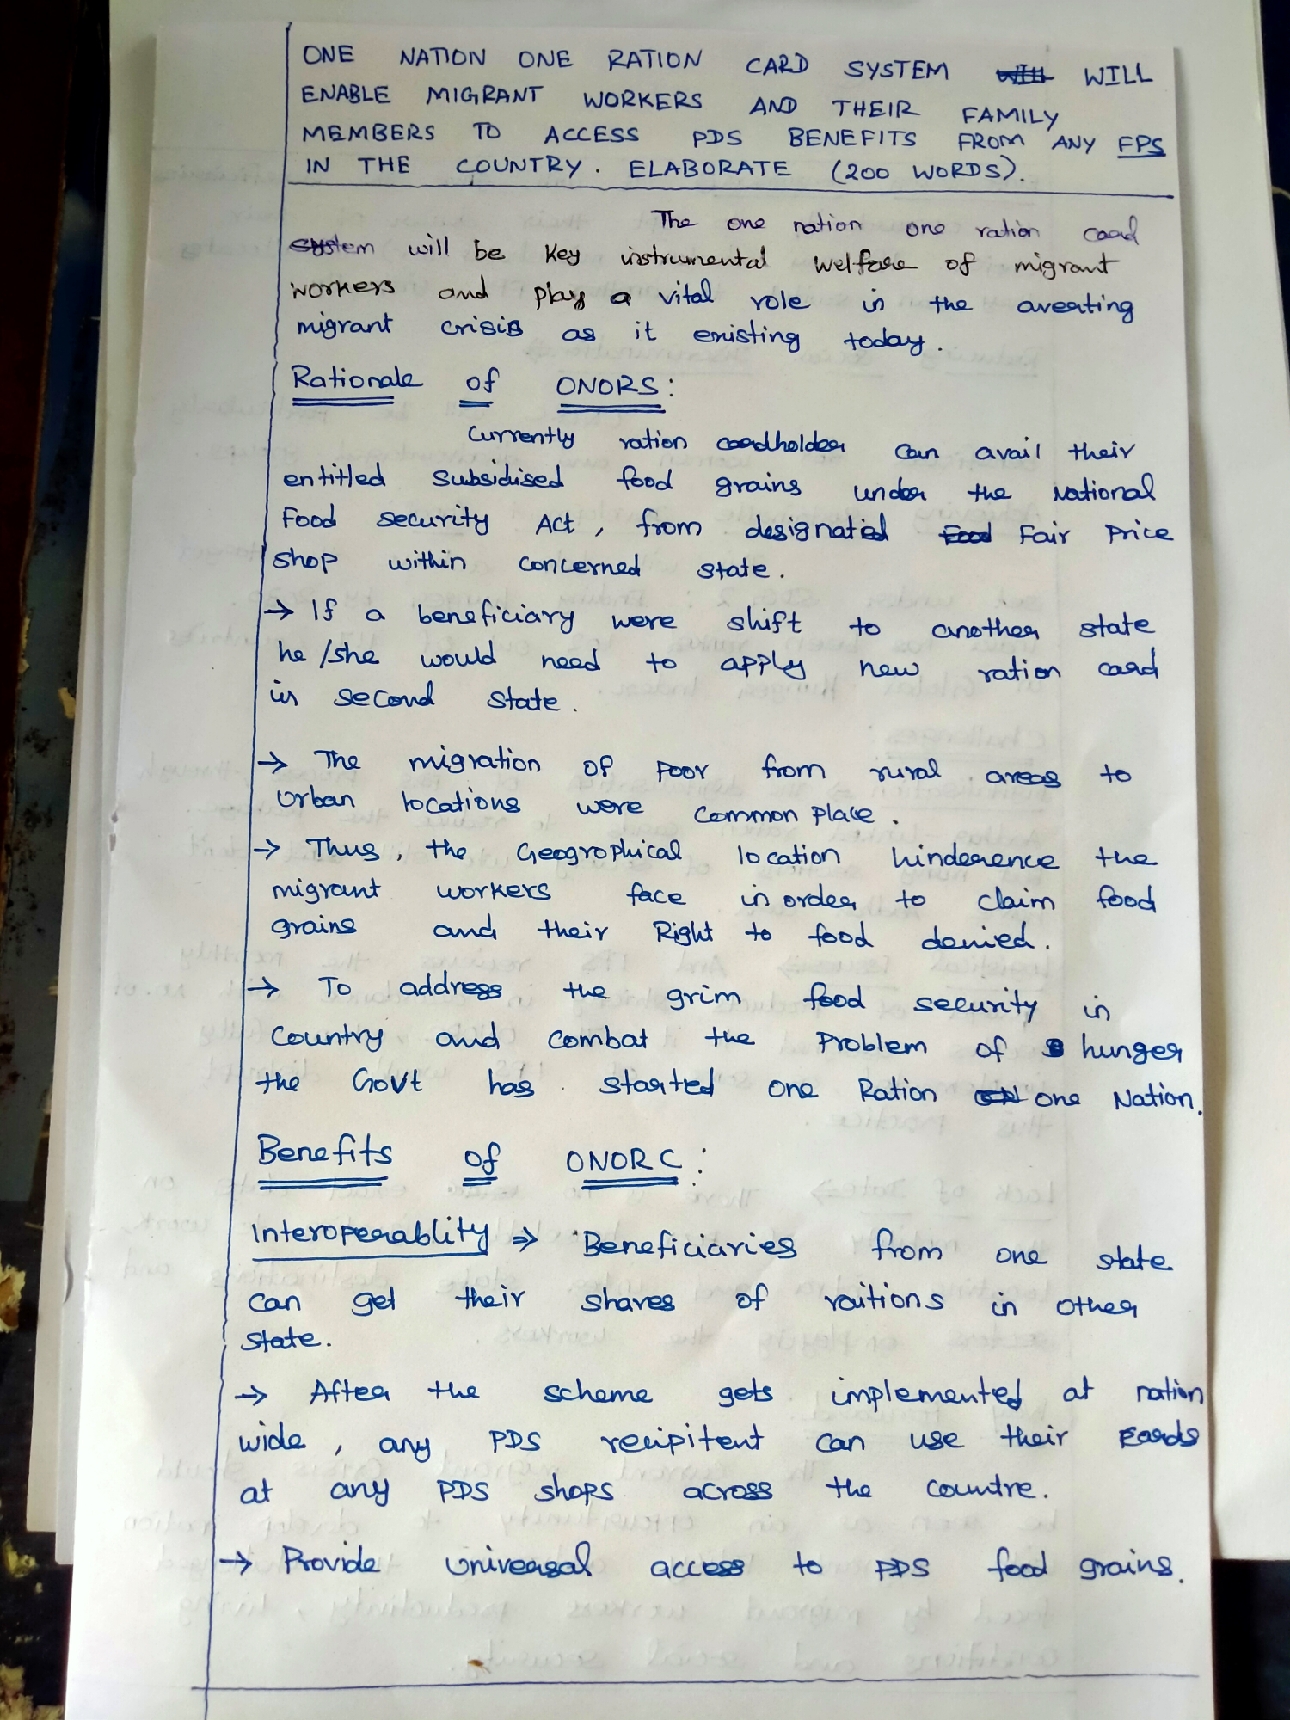 ONE NATION ONE RATION CARD SYSTEM WILL
ENABLE MIGRANT WORKERS AND THEIR FAMILY
MEMBERS TO ACCESS PDS BENEFITS FROM ANY FPS
IN THE COUNTRY. ELABORATE (200 WORDS).
The one nation one ration card
system will be key instrumental welfare of migrant
workers and play a vital role in the averting
migrant crisis as it existing today.
Rationale of ONORS:
Currently ration cardholder can avail their
entitled subsidised food grains under the National
Food security Act, from designated Fair Price
shop within concerned state.
→ If a beneficiary were shift to another state
he/she would need to apply new ration card
in second state.
→ The migration of poor from rural areas to
urban locations were common place.
→ Thus, the Geographical location hinderence the
migrant workers face in order to claim food
grains and their Right to food denied.
→ To address the grim food security in
country and combat the problem of hunger
the Govt has started one Ration one Nation.
Benefits of ONORC:
Interoperablity ⇒ Beneficiaries from one state
can get their shares of raitions in other
state.
→ After the scheme gets implemented at nation
wide, any PDS recipitent can use their cards
at any PDS shops across the countre.
→ Provide universal access to PDS food grains.